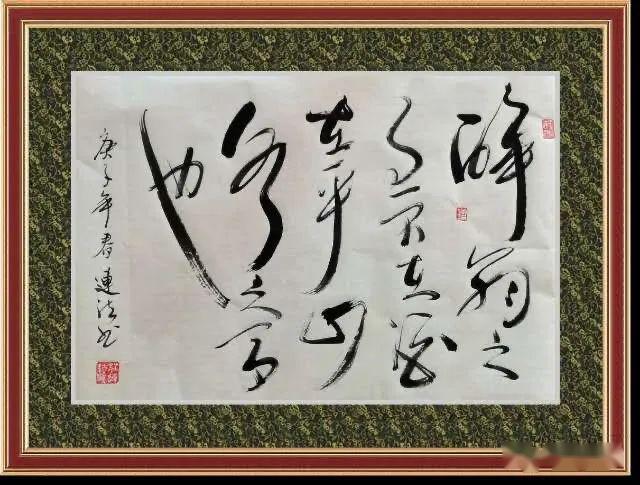 醉翁之
意不在酒
在乎山
水之间
也
庚子年春連法书